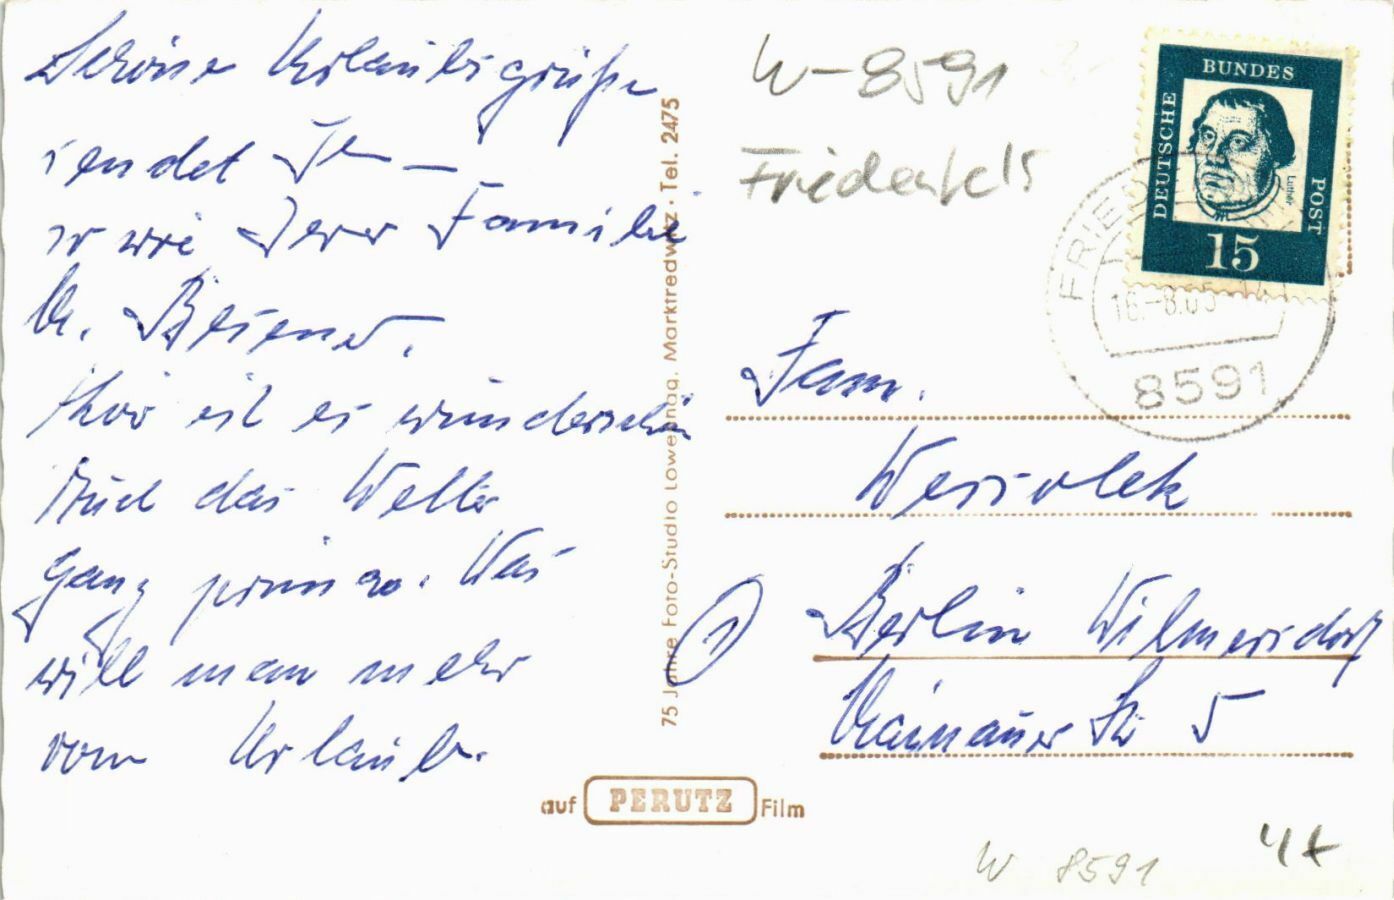 Schöne Urlaubsgrüße
sendet
sowie Ihrer Familie
Hier ist es wunderschön
Auch das Wetter
ganz prima. Was
will man mehr
vom Urlaub.
75 Jahre Foto-Studio Lowernag, Marktredwitz · Tel. 2475
auf PERUTZ Film
W-8591
Friedenfels
DEUTSCHE BUNDES POST
Luther
15
8591
Fam.
Wessolek
① Berlin Wilmersdorf
Mainauer Str 5
W 8591